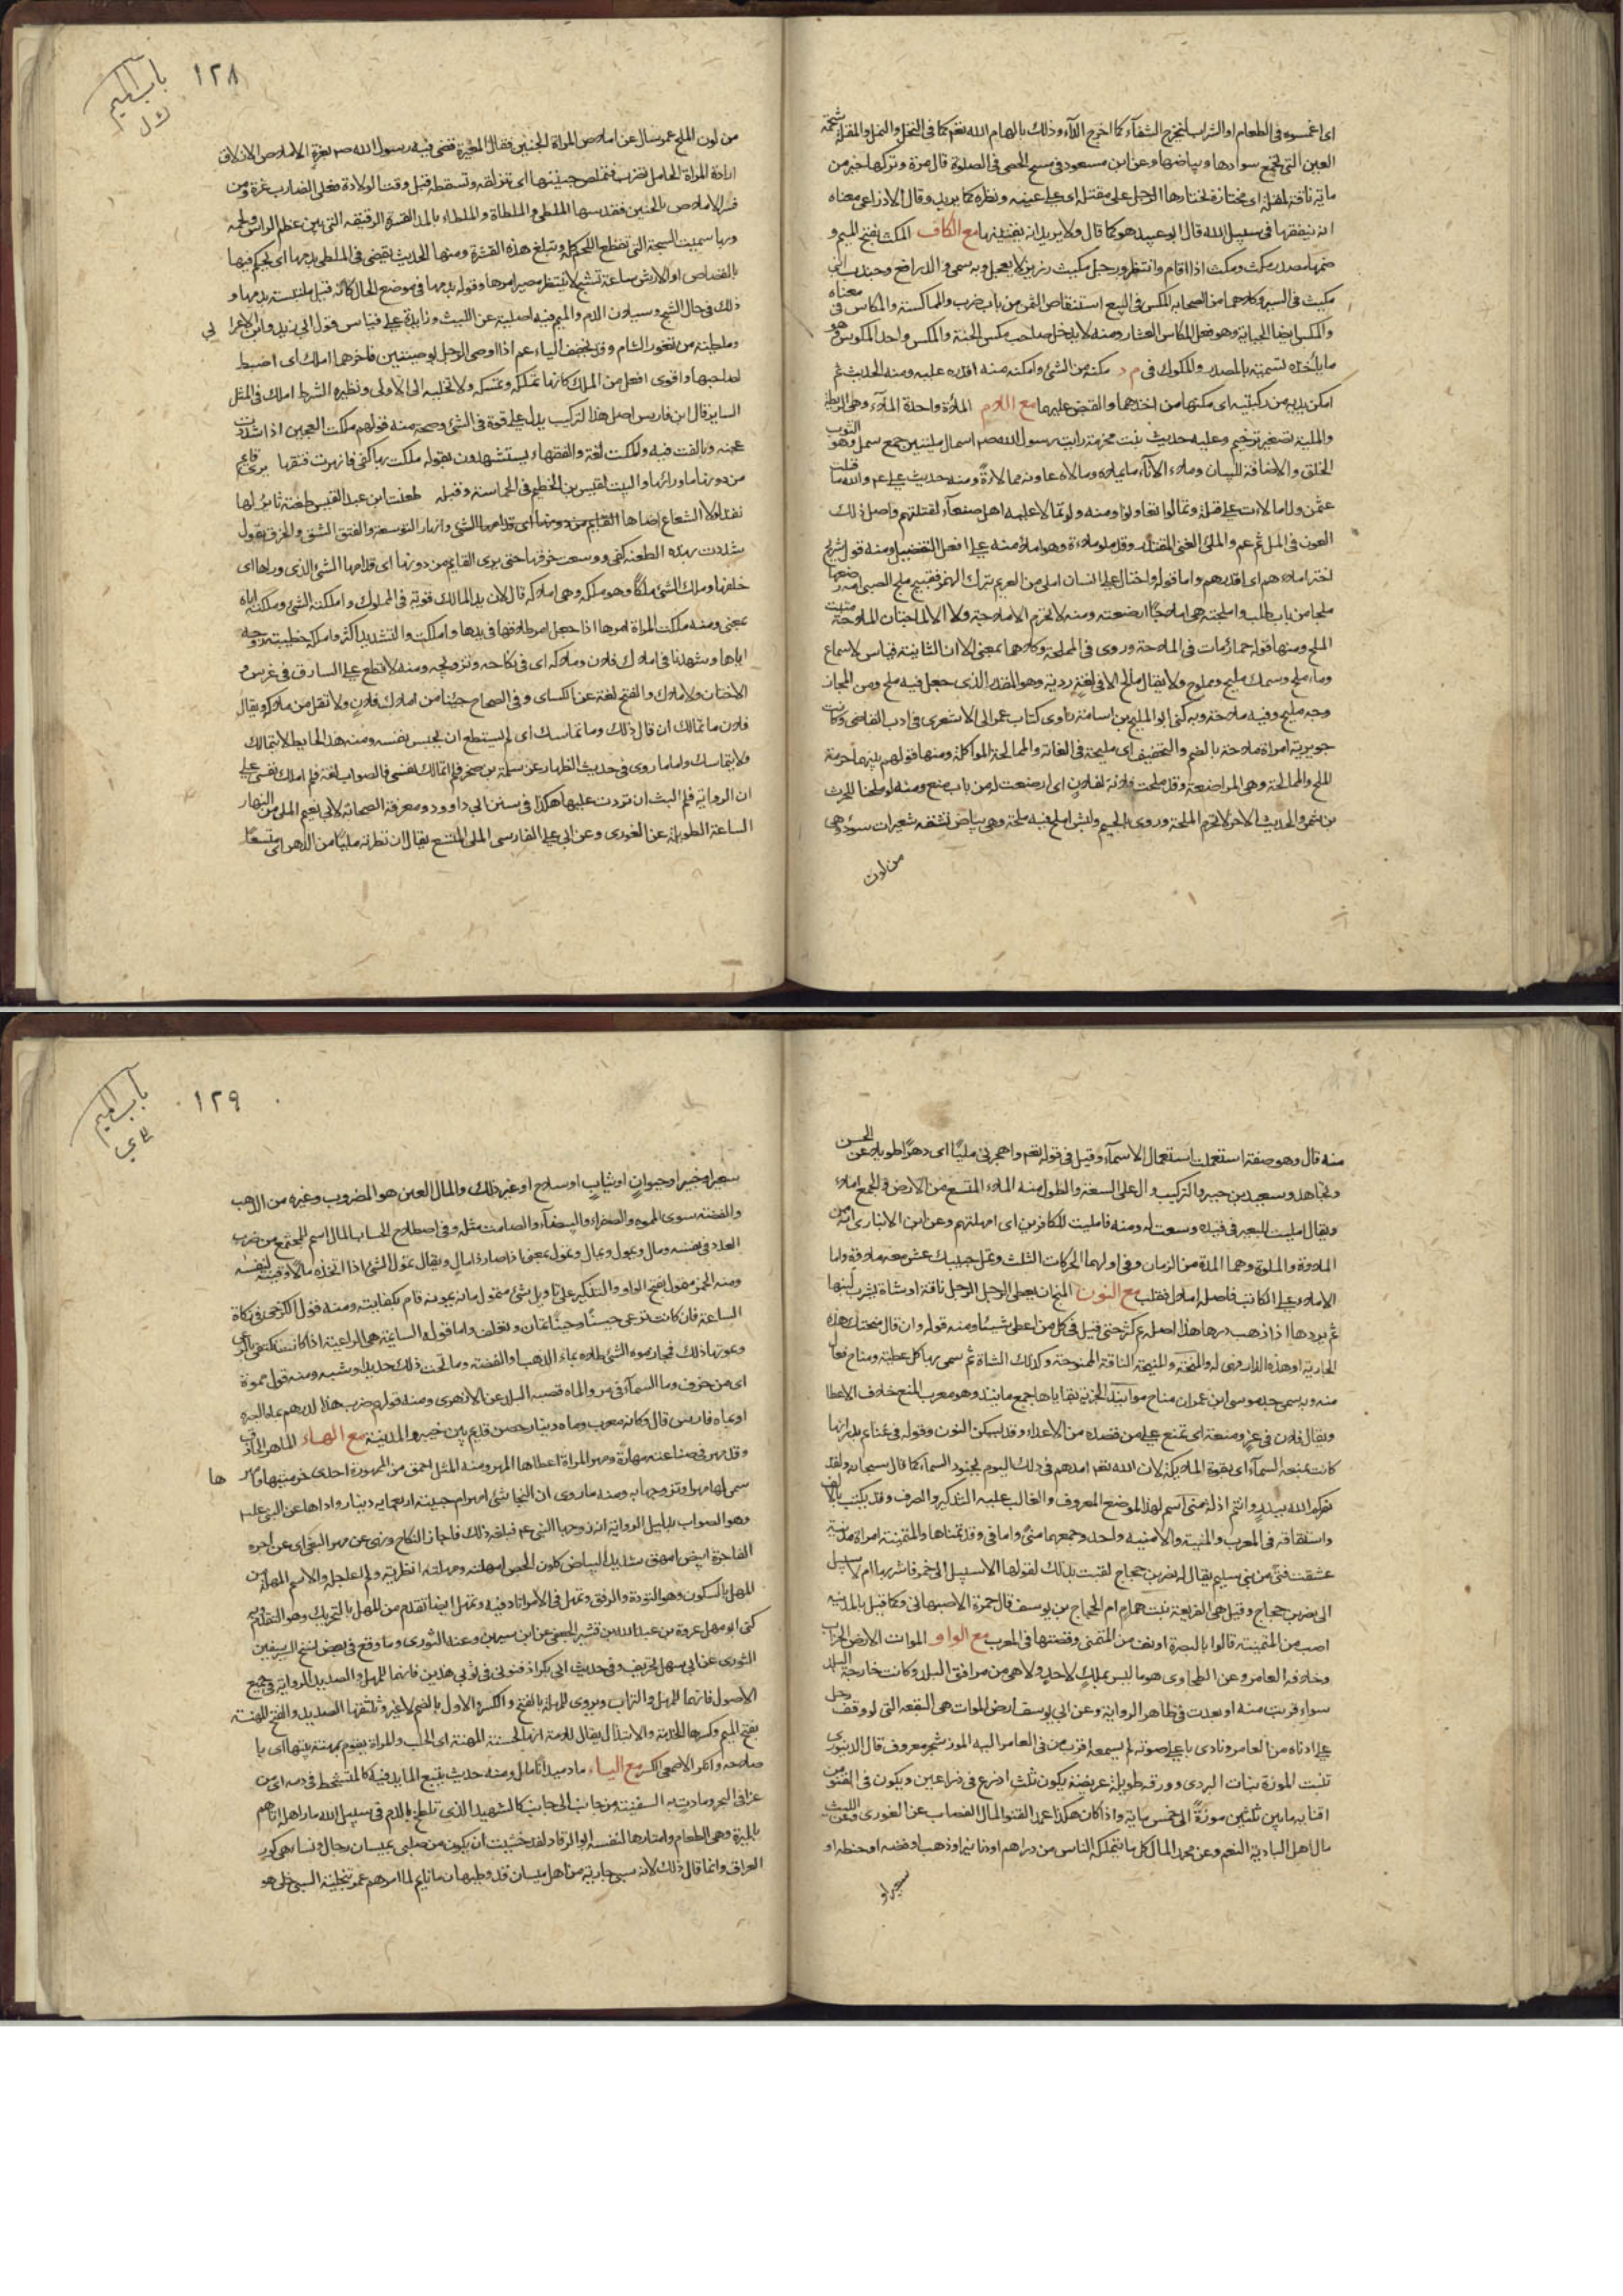 اى اغمسوه فى الطعام او الشراب ليخرج الشفآء كما اخرج الدآء وذلك بالهام الله تعم كما فى النحل والنمل والمقلة شحمة
العين التى تجمع سوادها وبياضها وعن ابن مسعود فى مسح الحصى فى الصلوة قال مرة وتركها خير من
ماية ناقة لمقلة اى مختارة يختارها الرجل على مقتله اى على عينه ونظره كما يريد وقال الاوزاعى معناه
انه ينفقها فى سبيل الله قال ابو عبيد هو كما قال ولا يريد انه يقتنيها مع الكاف المكث بفتح الميم و
ضمها مصدر مكث ومكث اذا اقام وانتظر ورجل مكيث رزين لا يعجل وبه سمى والد رافع وجندب ابنى
مكيث فى السير وكلاهما من الصحابه المكس فى البيع استنقاص الثمن من باب ضرب والمماكسة والمكاس فى معناه
والمكس ايضا الجباية وهو فعل المكاس العشار ومنه لا يدخل صاحب مكس الجنة والمكس واحد المكوس هو
ما ياخذه تسمية بالمصدر والمكوك فى م د مكنه من الشئ وامكنه منه اقدره عليه ومنه الحديث ثم
امكن يديه من ركبتيه اى مكنهما من اخذهما والقبض عليهما مع اللام الملآءة واحدة الملآء وهى الريطة
والملية تصغير ترخيم وعليه حديث بنت مخرمة رايت رسول الله صم اسمال مليتين جمع سمل وهو الثوب
الخلق والاضافة للبيان وملاء الانآء ما يملاه ومالاه عاونه ممالاة ومنه حديث على عم والله ما قتلت
عثمن ولا مالات على قتله وتمالوا تعاونوا ومنه ولو تمالا عليه اهل صنعآء لقتلتهم واصل ذلك
العون فى الملء ثم عم والملئ الغنى المقتدر وقد ملؤ ملاءة وهو املؤ منه على افعل التفضيل ومنه قول شريح
اختر املاءهم اى اقدرهم واما قوله واحتال على انسان املى من الغريم بترك الهمز فقبيح ملج الصبى امه رضعها
ملجا من باب طلب واملجته هى املاجا ارضعته ومنه لا تحرم الاملاجة ولا الاملاجتان الملاحة منبت
الملح ومنها قوله حمار مات فى الملاحة وروى فى المملحة وكلاهما بمعنى الا ان الثانية قياس لا سماع
وماء ملح وسمك مليح ومملوح ولا يقال مالح الا فى لغة ردية وهو المقدد الذى جعل فيه ملح ومن المجاز
وجه مليح وفيه ملاحة وبه كنى ابو المليح بن اسامة راوى كتاب عمر الى الاشعرى فى ادب القاضى وكانت
جويرية امراة ملاحة بالضم والتخفيف اى مليحة فى الغاية والممالحة المواكلة ومنها قولهم بينهما حرمة
الملح والممالحة وهى المراضعة وقد ملحت فلانة لفلان اى ارضعت له من باب منع ومنه لو ملحنا للحرث
بن شمر والحديث الاخر لا تحرم الملحة وروى بالجيم وكبش املح فيه ملحة وهى بياض تشقه شعيرات سود وهى
من لون
١٢٨
باب الميم
ك ل
من لون الملح عمر سال عن املاص المراة الجنين فقال المغيرة قضى فيه رسول الله صم بغرة الاملاص الازلاق
ارادة المراة الحامل تضرب فتملص جنينها اى تزلقه وتسقطه قبل وقت الولادة فعلى الضارب غرة ومن
فسر الاملاص بالجنين فقد سها الملطى والملطاة والملطاء بالمد القشرة الرقيقه التى بين عظم الراس ولحمه
وبها سميت الشجة التى تقطع اللحم كله وتبلغ هذه القشرة ومنها الحديث يقضى فى الملطى بدمها اى يحكم فيها
بالقصاص او الارش ساعة تشج لا ينتظر مصير امرها وقوله بدمها فى موضع الحال كانه قيل ملتبسة بدمها و
ذلك فى حال الشج وسيلان الدم والميم فيه اصلية عن الليث وزايدة على قياس قول ابى زيد وابن الاعرا بى
وملطية من ثغور الشام وقد يخفف الياء عم اذا اوصى الرجل بوصيتين فاخرهما املك اى اضبط
لصاحبها واقوى افعل من الملك كانها تملكه وتمسكه ولا تخليه الى الاولى ونظيره الشرط املك فى المثل
الساير قال ابن فارس اصل هذا التركيب يدل على قوة فى الشئ وصحة منه قولهم ملكت العجين اذا شددت
عجنه وبالغت فيه واملكت لغة والفقهاء يستشهدون بقوله ملكت بها كفى فانهرت فتقها يرى قائم
من دونها ما وراءها والبيت لقيس بن الخطيم فى الحماسة وقبله طعنت ابن عبد القيس طعنة ثائر لها
نفذ لولا الشعاع اضاها القايم من دونها اى قدامها الشئ وانهار التوسعة والفتق الشق والخرق يقول
شددت بهذه الطعنة كفى ووسعت خرقها حتى يرى القايم من دونها اى قدامها الشئ الذى وراها اى
خلفها وملك الشئ ملكا وهو ملكه وهى املاكه قال لان يد المالك قوية فى المملوك واملكته الشئ وملكته اياه
بمعنى ومنه ملكت المراة امرها اذا جعل امر طلاقها فى يدها واملكت والتشديد اكثر واملكه خطيبته زوجه
اياها وشهدنا فى املاك فلان وملاكه اى فى نكاحه وتزويجه ومنه لا قطع على السارق فى عرس و
الاختان ولا ملاك والفتح لغة عن الكساى وفى الصحاح جئنا من املاك فلان ولا تقل من ملاكه ويقال
فلان ما تمالك ان قال ذلك وما تماسك اى لم يستطع ان يحبس نفسه ومنه هذا الحايط لا يتمالك
ولا يتماسك واما ما روى فى حديث الظهار عن سلمة بن صخر فلم اتمالك نفسى فالصواب لغة فلم املك نفسى على
ان الرواية فلم البث ان نزوت عليها هكذا فى سنن ابى داوود ومعرفة الصحابة لابى نعيم الملى من النهار
الساعة الطويلة عن الغورى وعن ابى على الفارسى الملى المتسع يقال انتظرته مليا من الدهر اى متسعا
منه قال وهو صفة استعملت استعمال الاسمآء وقيل فى قوله تعم واهجرنى مليا اى دهرا طويلا عن الحسن
ومجاهد وسعيد بن جبير والتركيب دال على السعة والطول منه الملا المتسع من الارض والجمع املاء
ويقال امليت للبعير فى قيده وسعت له ومنه فامليت للكافرين اى امهلتهم وعن ابن الانبارى انه من
الملاوة والملوة وهما المدة من الزمان وفى اولهما الحركات الثلث وتمل حبيبك عش معه ملاوة واما
الاملاء على الكاتب فاصله املال فقلب مع النون المنح ان يعطى الرجل الرجل ناقة او شاة يشرب لبنها
ثم يردها اذا ذهب درها هذا اصله ثم كثر حتى قيل فى كل من اعطى شيئا ومنه قوله وان قال منحتك هذه
الجارية او هذه الدار فهى له والمنحة والمنيحة الناقة الممنوحة وكذلك الشاة ثم سمى بها كل عطية ومناح فعال
منه وبه سمى جد موسى ابن عمران مناح موانيذ الجزية بقاياها جمع مانيذ وهو معرب المنع خلاف الاعطا
ويقال فلان فى عز ومنعة اى تمنع على من قصده من الاعداء وقد يسكن النون وقوله فى غنائم بدر انها
كانت بمنعة السمآء اى بقوة الملايكة لان الله تعم امدهم فى ذلك اليوم بجنود السمآء كما قال سبحانه ولقد
نصركم الله ببدر وانتم اذلة منى اسم لهذا الموضع المعروف والغالب عليه التذكير والصرف وقد يكتب بالالف
واشتقاقه فى المعرب والمنية والامنية واحد وجمعهما منى وامانى وقد تمناها والمتمنية امراة مدنية
عشقت فتى من بنى سليم يقال له نصر بن حجاج لقبت بذلك لقولها الا سبيل الى خمر فاشربها ام لا سبيل
الى نصر بن حجاج وقيل هى الفريعة بنت همام ام الحجاج بن يوسف قال حمزة الاصبهانى وكما قيل بالمدينه
اصب من المتمنية قالوا بالبصرة ادنف من المتمنى وقصتها فى المعرب مع الواو الموات الارض الخراب
وخلافه العامر وعن الطحاوى هو ما ليس بملك لاحد ولا هى من مرافق البلد وكانت خارجة البلد
سواء قربت منه او بعدت فى ظاهر الرواية وعن ابى يوسف ارض الموات هى البقعه التى لو وقف رجل
على ادناه من العامر ونادى باعلى صوته لم يسمعه اقرب من فى العامر اليه الموز شجر معروف قال الدينورى
تنبت الموزة نبات البردى وورقه طويلة عريضة يكون ثلث اذرع فى ذراعين ويكون فى القنو من
اقنايه ما بين ثلثين موزة الى خمس ماية واذا كان هكذا عمد القنو المال النصاب عن الغورى وعن الليث
مال اهل البادية النعم وعن محمد المال كل ما يتملكه الناس من دراهم او دنانير او ذهب او فضه او حنطه او
شعير او
١٢٩
باب الميم
ى
شعير او خبز او حيوان او ثياب او سلاح او غير ذلك والمال العين هو المضروب وغيره من الذهب
والفضه سوى المموه والصفراء والبيضآء والصامت مثله وفى اصطلاح الحساب المال اسم للمجتمع من ضرب
العدد فى نفسه ومال ويمول ويمال وتمول بمعنى اذا صار ذا مال ويقال تمول الشئ اذا اتخذه مالا وقنية لنفسه
ومنه الخمر متمول بفتح الواو والتذكير على تاويل شئ متمول مانه يمونه قام بكفايته ومنه قول الكرخى فى زكاة
الساعة فان كانت ترعى حينا وحينا تمان وتعلف واما قوله السائمة هى الراعية اذا كانت تكتفى بالرعى
وعونها ذلك فمجاز موه الشئ طلاه بماء الذهب او الفضه وما تحت ذلك حديد او شبه ومنه قول مموه
اى مزخرف وما السمآء فى مر والماه قصبه البلد عن الازهرى ومنه قولهم ضرب هذا الدرهم بماه البصرة
او بماه فارس قال وكانه معرب وماه دينار حصن قديم بين خيبر والمدينة مع الهاء الماهر الحاذق
وقد مهر فى صناعته مهارة ومهر المراة اعطاها المهر ومنه المثل احمق من الممهورة احدى خدمتيها وامهر ها
سمى لها مهرا وتزوجها به ومنه ما روى ان النجاشى امهر ام حبيبة اربعماية دينار واداها عن النبى عليه
وهو الصواب بدليل الرواية انه زوجها النبى عم فبلغه ذلك فاجاز النكاح ونهى عن مهر البغى اى عن اجره
الفاجرة ابيض امهق شديد البياض كلون الجص امهلته ومهلته انظرته ولم اعاجله والاسم المهلة من
المهل بالسكون وهو التؤدة والرفق وتمهل فى الامر اتاد فيه وتمهل ايضا تقدم من المهل بالتحريك وهو التقدم وبه
كنى ابو مهل عروة بن عبد الله بن قشير الجعفى عن ابن سيرين وعنه الثورى وما وقع فى بعض نسخ السير عن
الثورى عن ابى سهل تحريف وفى حديث ابى بكر اذ فنونى فى ثوبى هذين فانهما للمهل والصديد الرواية فى جميع
الاصول فانهما للمهل والتراب ويروى للمهلة بالفتح والكسر والاول بالضم لا غير وثلثتها الصديد والقيح المهنة
بفتح الميم وكسرها الخدمة والابتذال يقال للامة انها لحسنة المهنة اى الحلب والمراة يقوم بمهنة بيتها اى با
صلاحه وانكر الاصمعى الكسر مع الياء ماد ميدا تمايل ومنه حديث بتتبع المايد فيه كالمتشحط فى دمه اى من
غزا فى البحر ومادت به السفينة من جانب الى جانب كالشهيد الذى تلطخ بالدم فى سبيل الله مار اهله اتاهم
بالميرة وهى الطعام وامتارها لنفسه ابو الرقاد لقد خشيت ان يكون من صلبى بميسان رجال ونسا هى كور
العراق وانما قال ذلك لانه سبى جارية من اهل ميسان قد وطيها زمانا ثم لما امرهم عمر بتخلية السبى خلى هو